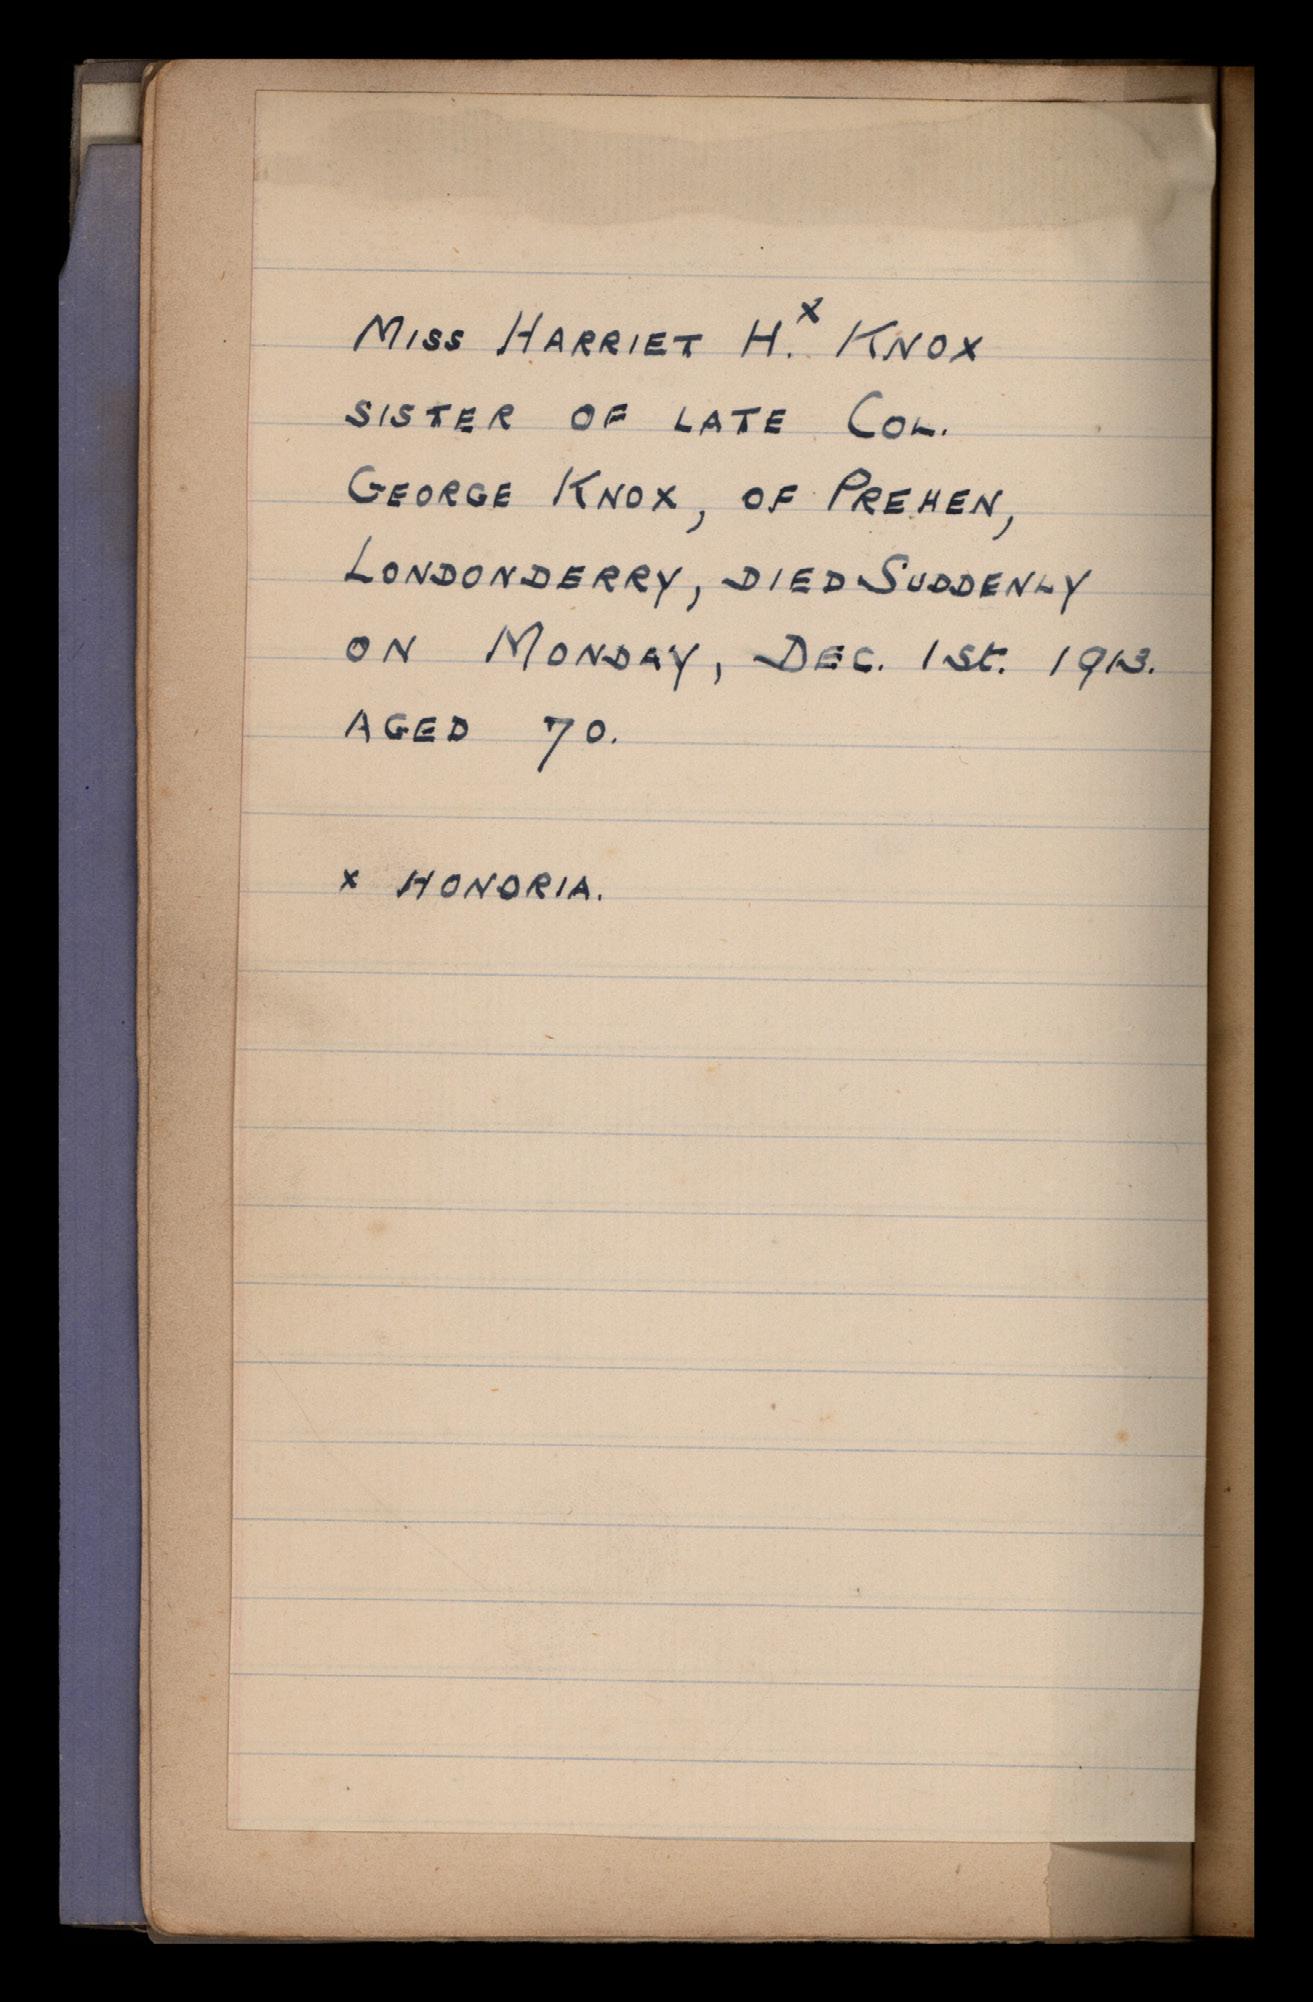 Miss Harriet H.x Knox
sister of late Col.
George Knox, of Prehen,
Londonderry, died Suddenly
on Monday, Dec. 1st. 1913.
aged 70.
x Honoria.